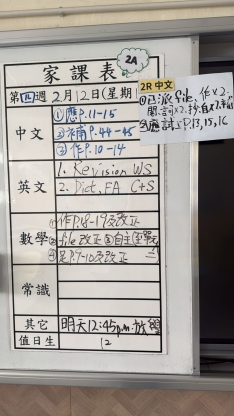 家課表
2A
第四週 2月12日(星期
中文
①應P.11-15
②補P.44-45
③作P.10-14
英文
1. Revision WS
2. Dict, FA C+S
數學
①作P.18-19及改正
②file改正
③自主
④足P.7-10及改正
常識
其它
明天12:45p.m.放學
值日生
12
2R 中文
①已派file、作x2、
②應試P.13,15,16